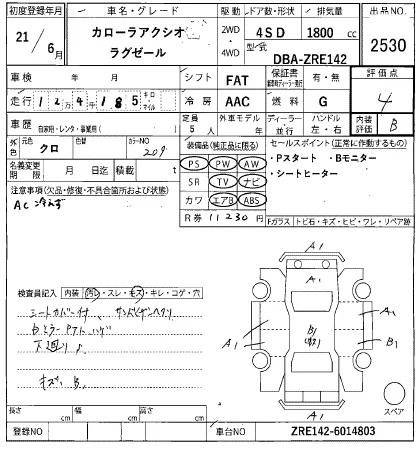 初度登録年月 車名・グレード 駆動 ドア数・形状 排気量 出品NO
21/6月 カローラアクシオ ラグゼール 2WD・4WD 4SD 1800cc 2530
型式 DBA-ZRE142
車検 年 月 シフト FAT 保証書 有・無 評価点
走行 12万4185 キロ・マイル 冷房 AAC 燃料 G 4
車歴 自家用・レンタ・事業用( ) 定員 5人 外車モデル ディーラー・並行 ハンドル 左・右 内装評価 B
外色 元色 クロ 色替 カラーNO 209 装備品(純正品に限る) セールスポイント(正常に作動するもの)
PS PW AW ・Pスタート ・Bモニター
名義変更期限 月 日迄 積載 t SR TV ナビ ・シートヒーター
注意事項(欠品・修復・不具合箇所および状態) カワ エアB ABS
AC冷えず R券 11230円 Fガラス トビ石・キズ・ヒビ・ワレ・リペア跡
A1
A1
検査員記入 内装 汚レ・スレ・モス・キレ・コゲ・穴
シートカバー付
A1
A1 B1 B1
下廻り
キズ B1
A1
スペア
長さ cm 幅 cm 高さ cm
登録NO 車台NO ZRE142-6014803